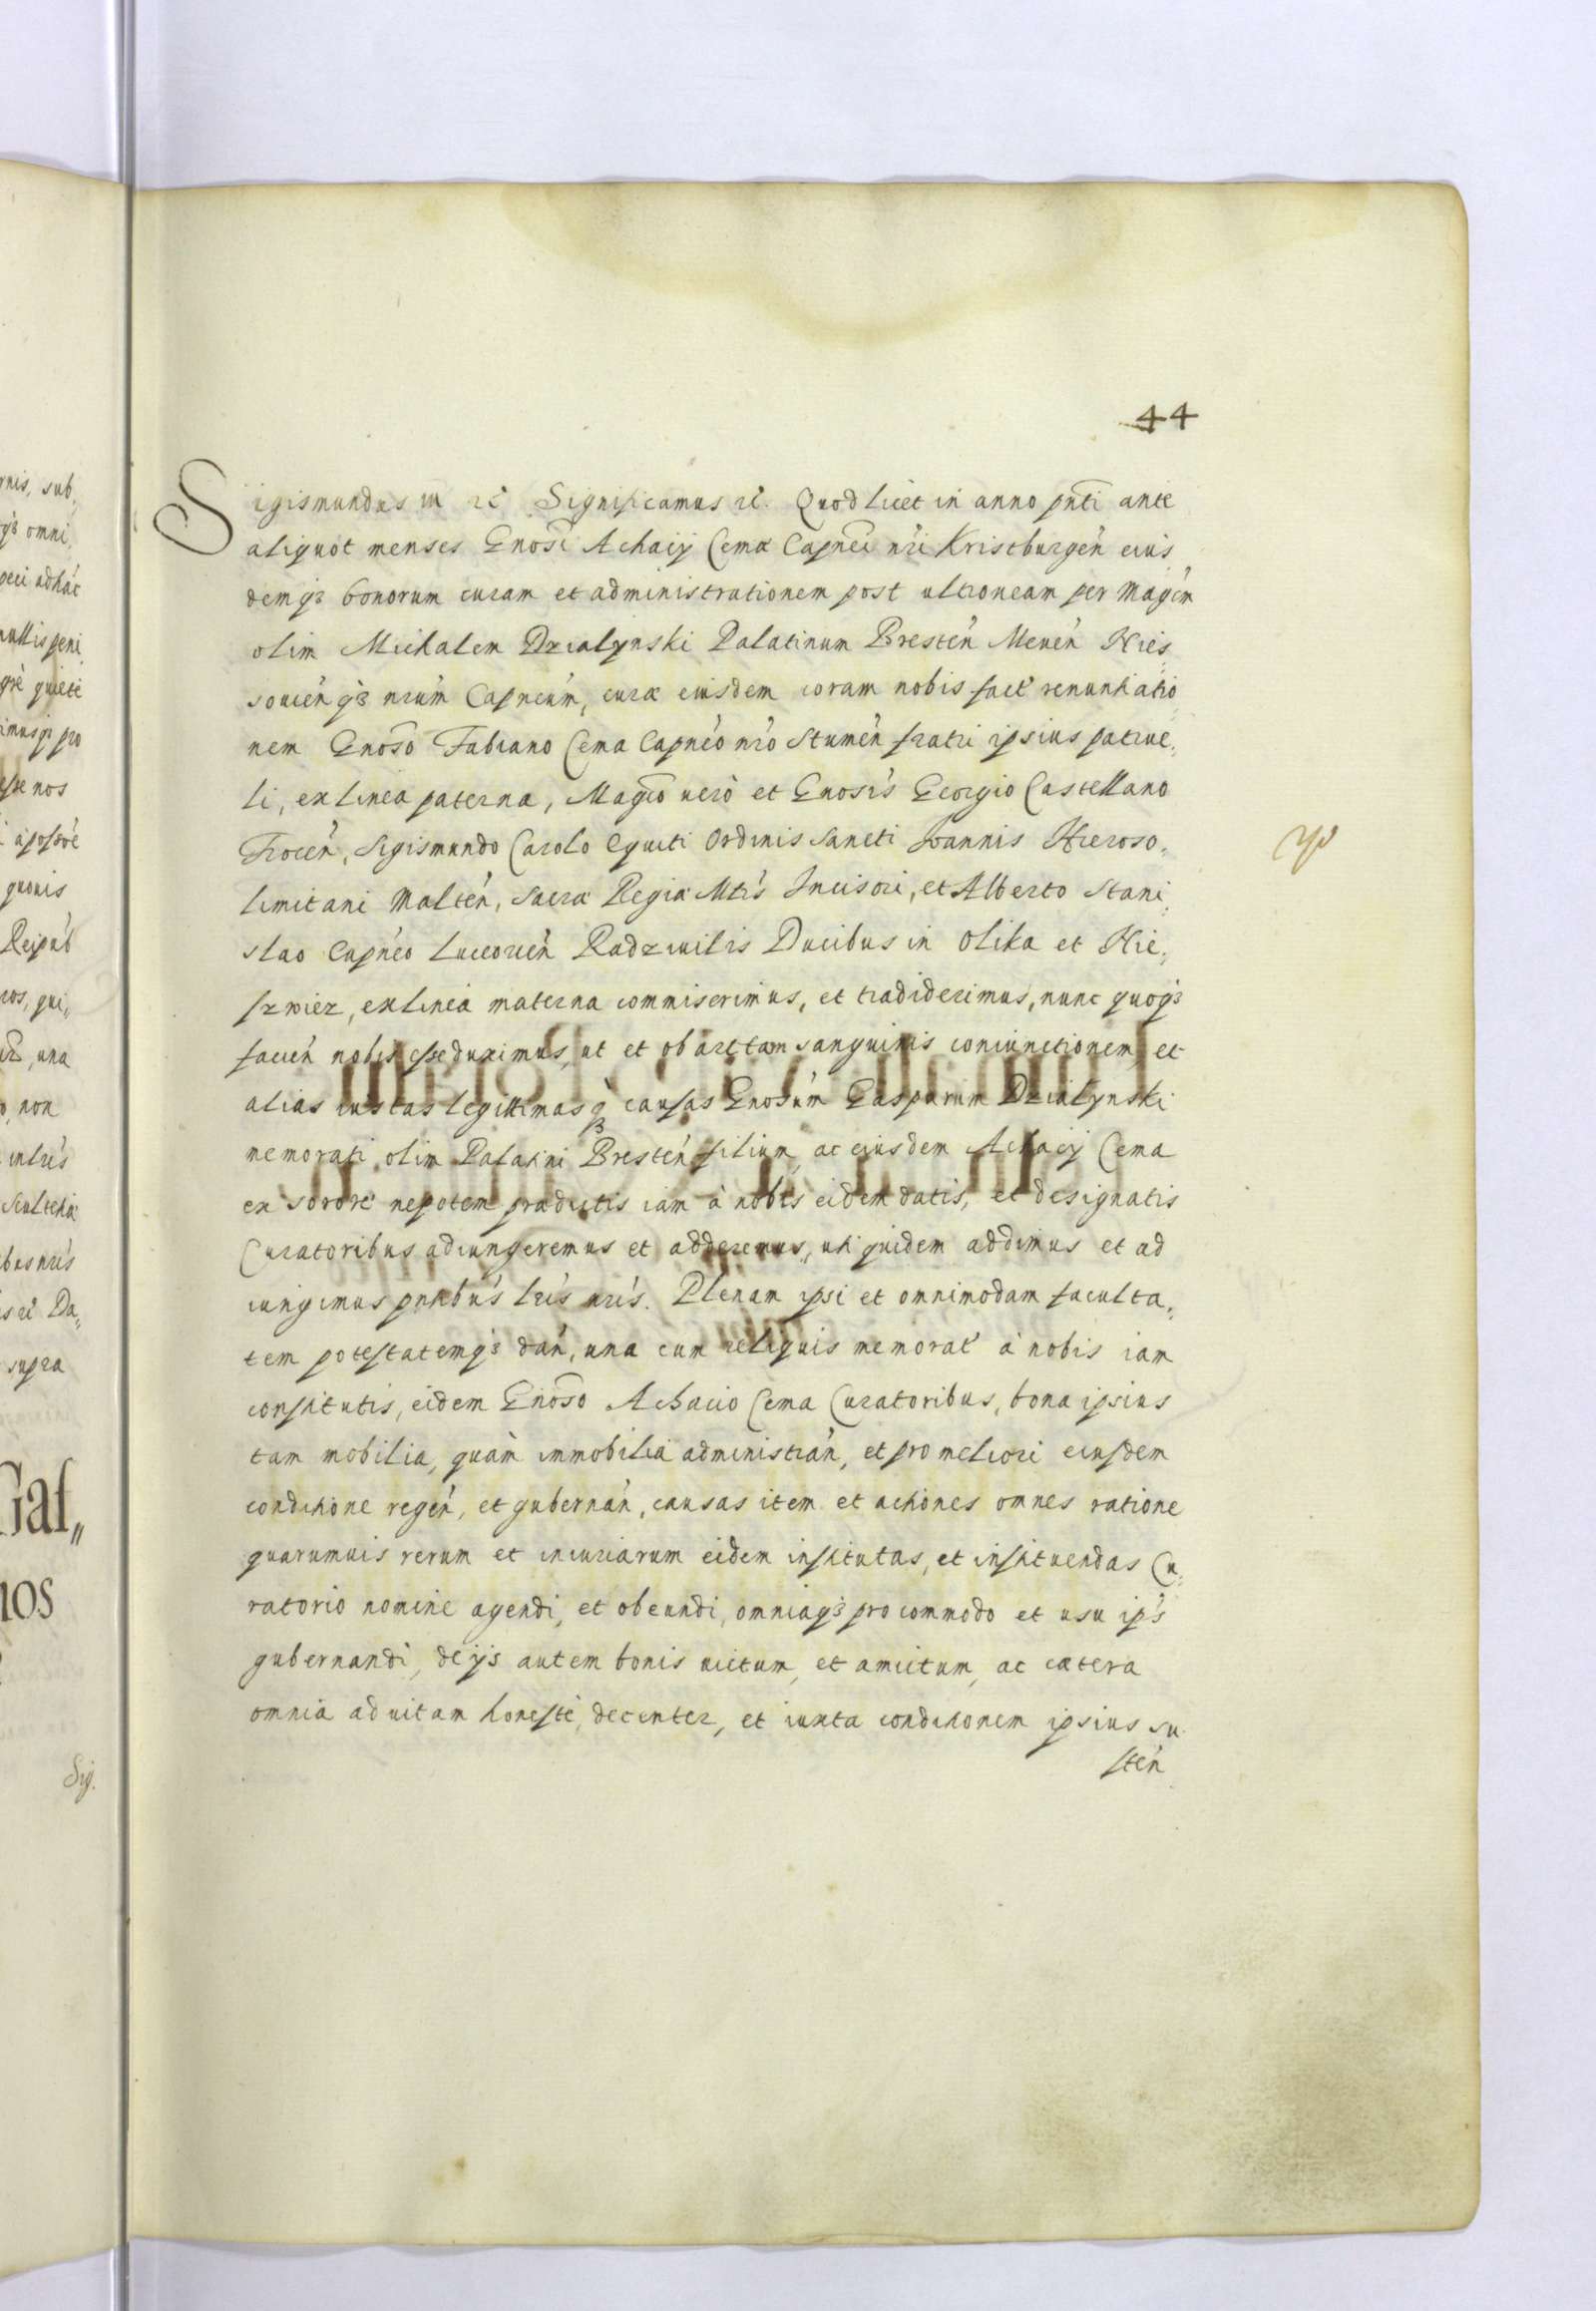 44
Sigismundus III etc Significamus etc. Quod licet in anno pnti ante
aliquot menses Gnosi Achacij Cemæ Capnei nri Kristburgen eius,
demq3 bonorum curam et administrationem post ultroneam per Magcm
olim Michalem Dzialynski Palatinum Bresten Meuen Nies,
souien q3 nrum Capneum, curæ eiusdem coram nobis fact renuntiatio
nem Gnoso Fabiano Cema Capneo nro Stumen fratri ipsius patrue,,
li, ex linea paterna, Magco uerò et Gnosis Georgio Castellano
Trocen, Sigismundo Carolo Equiti Ordinis Sancti Ioannis Hieroso,,
limitani Malten, Sacræ Regiæ Mtis Incisori, et Alberto Stani,,
slao Capneo Luceorien Radziuilis Ducibus in Olika et Nie,,
swiez, ex linea materna commiserimus, et tradiderimus, nunc quoq3
facien nobis esse duximus, ut et ob arctam sanguinis coniunctionem, et
alias iustas legittimasq3 causas Gnosum Gasparum Dzialynski
memorati olim Palatini Bresten filium, ac eiusdem Achacij Cema
ex sorore nepotem prædictis iam à nobis eidem datis, et designatis
Curatoribus adiungeremus et adderemus, uti quidem addimus et ad
iungimus pntibus lris nris. Plenam ipsi et omnimodam faculta,,
tem potestatemq3 dan, una cum reliquis memorat à nobis iam
constitutis, eidem Gnoso Achacio Cema Curatoribus, bona ipsius
tam mobilia, quàm immobilia administran, et pro meliori eiusdem
conditione regen, et gubernan, causas item et actiones omnes ratione
quarumuis rerum et iniuriarum eidem institutas, et instituendas Cu,,
ratorio nomine agendi, et obeundi, omniaq3 pro commodo et usu ips
gubernandi, de ijs autem bonis uictum, et amictum, ac cætera
omnia ad uitam honestè, decenter, et iuxta conditionem ipsius su
sten